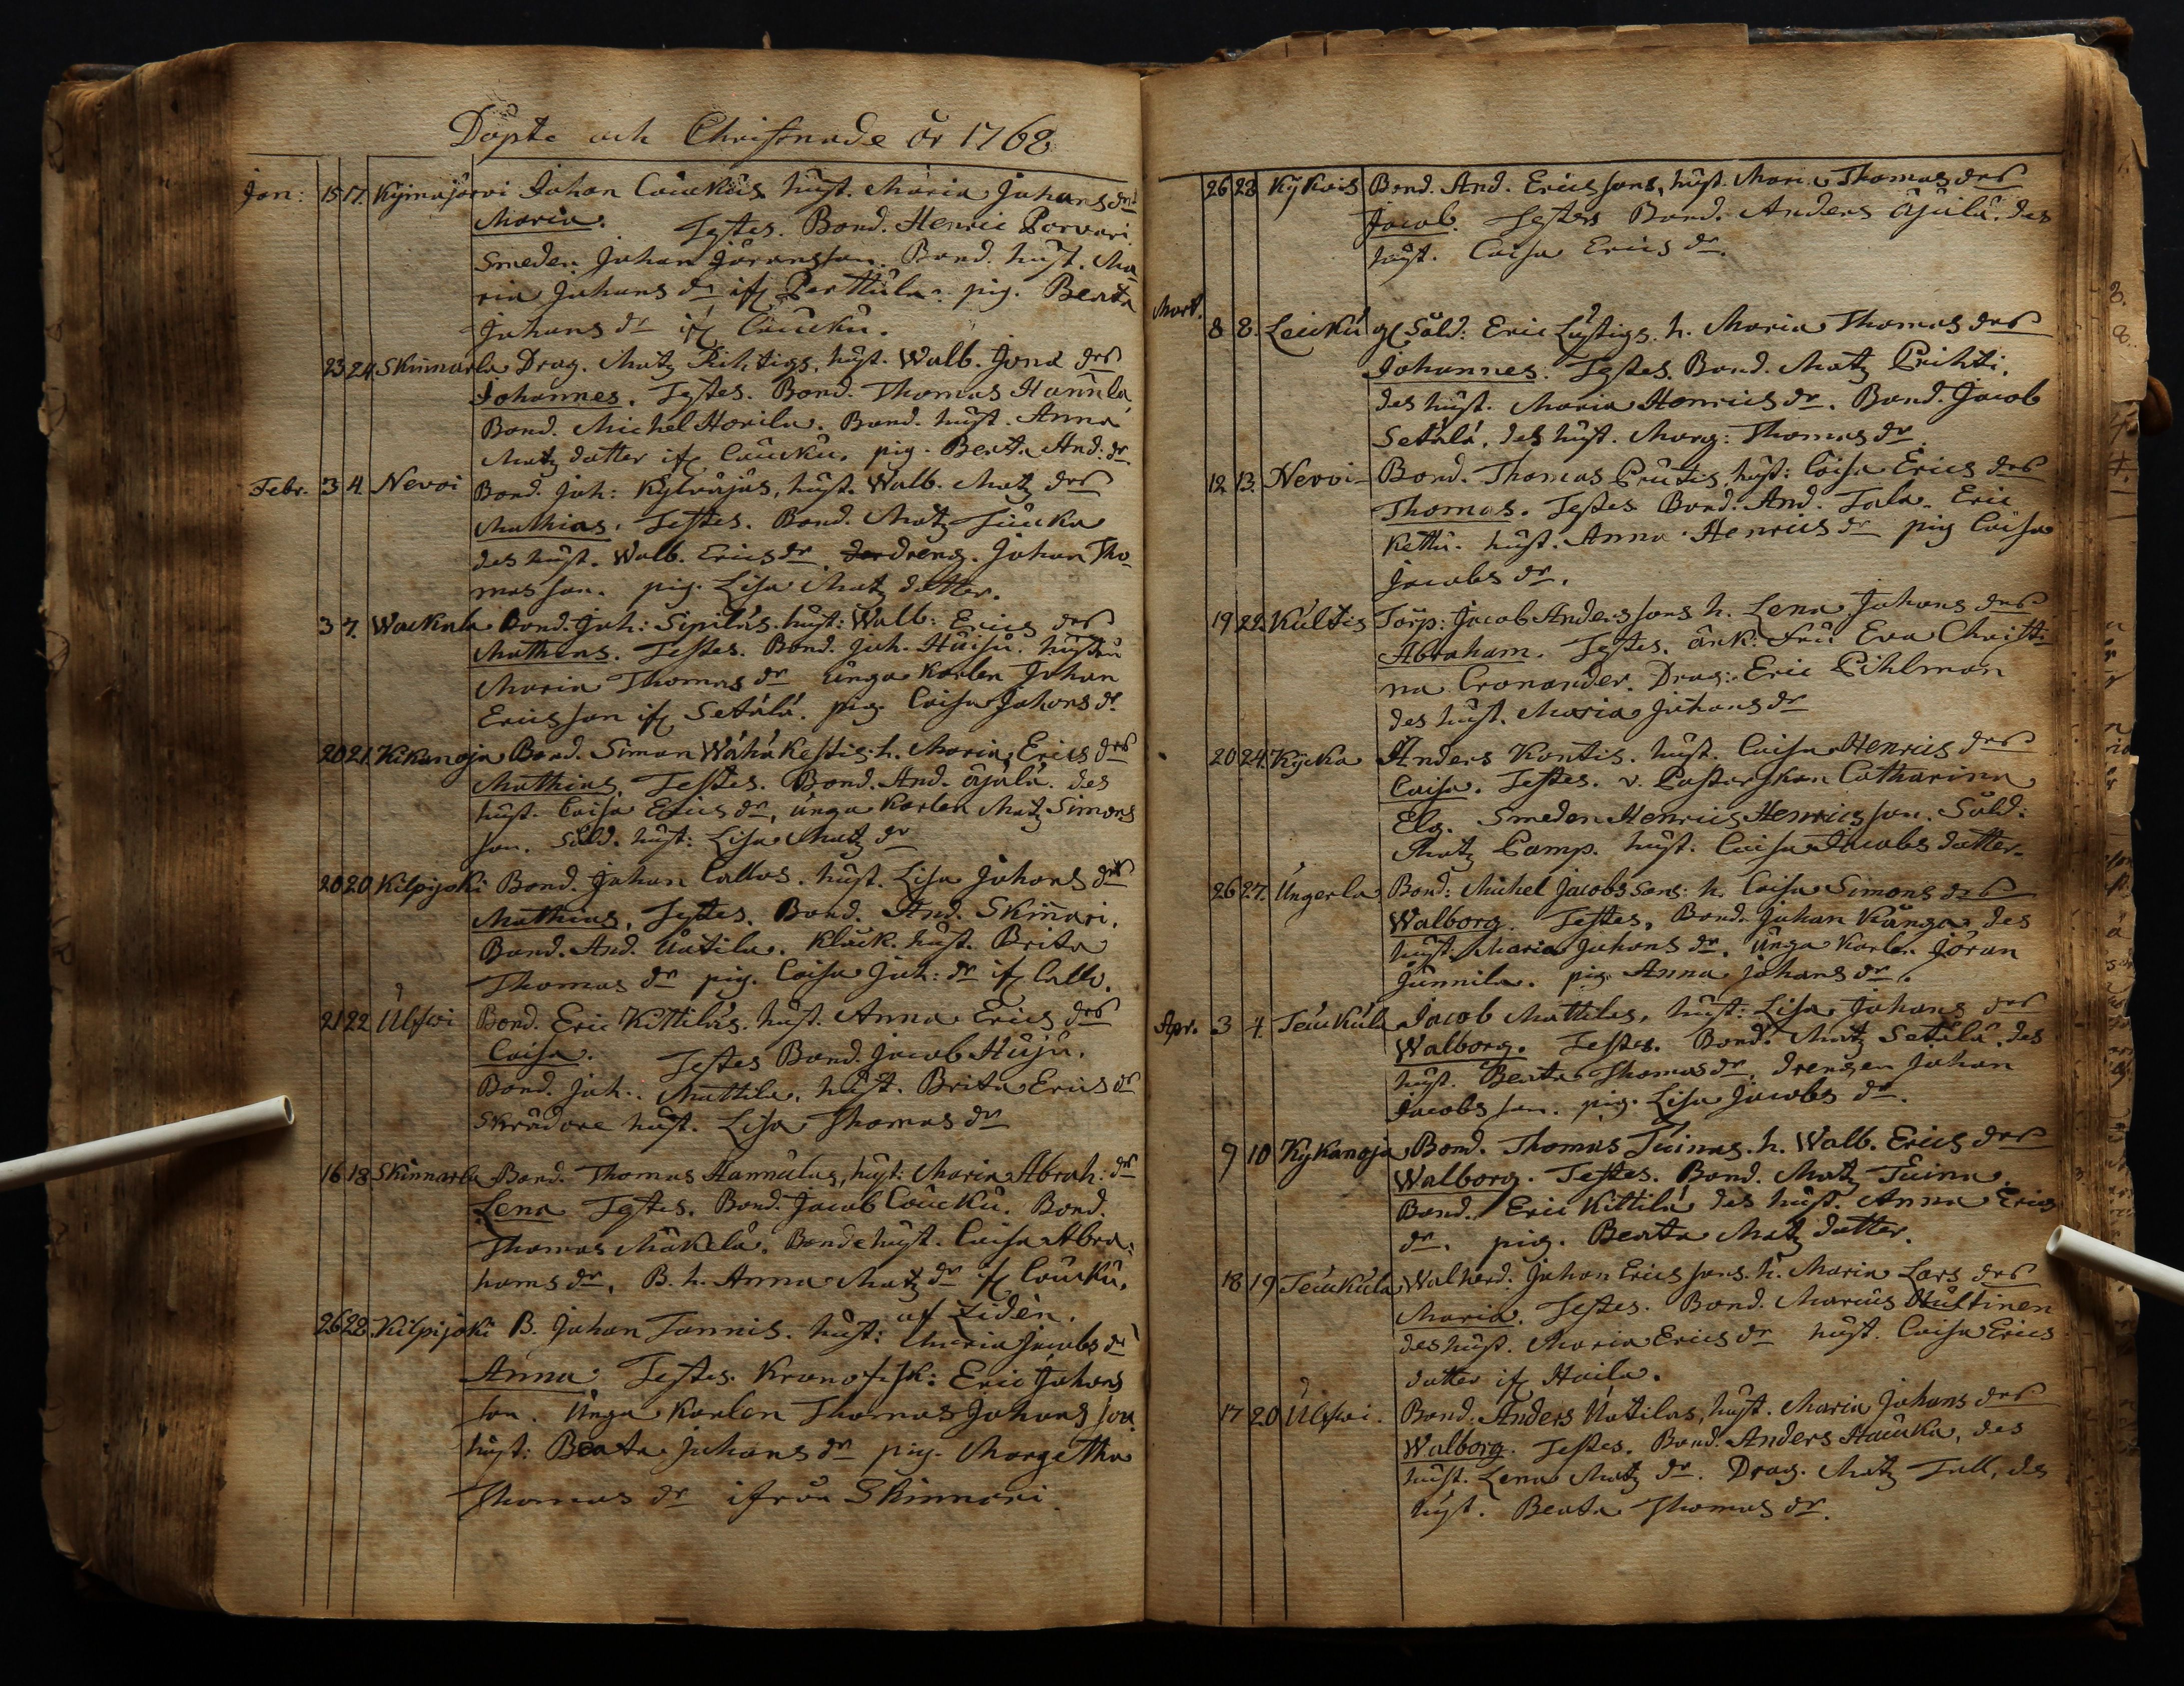 Döpte och Christnade år 1768
Jan: 15 17. Kyimajärvi Johan Cauckus hust. Maria Johans dr
Maria. Testes. Bond. Henric Porvari.
Smeden Johan Jöransson. Bond. hust. Ma
ria Johans dr if Perttula. pig. Beata
Johans dr if Caucku.
23 24. Skinnarla Drag. Matz Richtigs, hust. Walb. Jona drs
Johannes. Testes. Bond. Thomas Hannula
Bond. Michel Horila. Bond. hust. Anna
Matz dotter if Caucku. pig. Beata And: dr.
Febr. 3 4. Nevoi Bond. Joh: Kylväjäs, hust. Walb. Matz drs
Mathias. Testes. Bond. Matz
des hust. Walb. Erics dr. dreng. Johan Tho-
mas son. pig. Lisa Matz dotter.
3 7. Wackala Bond. Joh: Sipiläs. hust: Walb: Erics drs
Mathens. Testes. Bond. Joh. Huisu. hustru
Maria Thomas dr unga Karlen Johan
Ericsson if Setälä. pig. Caisa Johans dr.
20 21. Kikanoja Bond. Simon Wähäkestis. h. Maria Erics drs
Mathias. Testes. Bond. And. Äjälä. des
hust. Caisa Erics dr, unga Karlen Matz Simons
son. Sold. hust: Lisa Matz dr
20 20. Kilpijoki Bond. Johan Callos. hust. Lisa Johans drs
Mathias. Testes. Bond. And. Skinnari.
Bond. And. Uotila. Klåck. hust. Brita
Thomas dr pig. Caisa Joh: dr if Callo.
21 22 Ulfsvi Bond. Eric Kittiläs. hust. Anna Erics drs
Caisa. Testes Bond. Jacob Huju.
Bond. Joh. Mattila. hust. Brita Erics dr
Skrädare hust. Lisa Thomas dr
16 18. Skinnarla Bond. Thomas Hannulas, hust: Maria Abrah: dr
Lena Testes. Bond. Jacob Caucku. Bond.
Thomas Mäkelä. Bonde hust. Caisa Abra-
hams dr. B. h. Anna Matz dr if Caucku.
af Liden.
26 28. Kilpijoki B. Johan Tannis. hust: Maria Jacobs dr
Anna Testes. Eric Johans
son. Unga Karlen Thomas Johans son
hust: Beata Johans dr pig. Margetha
Thomas dr ifrån Skinnari.
26 28 Kykois Bond. And. Ericssons, hust. Maria Thomas drs
Jacob. Testes Bond. Anders Äjälä. des
hust. Caisa Erics dr.
Mart. 8 8. Leickü gl Sold: Eric Lustigs. h. Maria Thomas drs
Johannes. Testes. Bond. Matz Prihti.
des hust. Maria Henrics dr. Bond. Jacob
Setälä. des hust. Marg: Thomas dr.
12 13. Nevoi Bond. Thomas Prutis, hust: Caisa Erics drs
Thomas. Testes. Bond. And. Tala. Eric
Kettu. hust. Anna Henrics dr pig Caisa
Jacobs dr.
19 22. Kultis Torp: Jacob Anderssons h. Lena Johans drs
Abraham. Testes. änk: fru Eva Christi
na Cronander. Drag: Eric Pihlman
des hust. Maria Johans dr
20 24. Kycka Anders Kontis. hust. Caisa Henrics drs
Caisa. Testes. v. Pastorskan Catharina
Elg. Smeden Henric Henricsson. Sold:
Matz Camp. hust. Caisa Jacobs dotter.
26 27. Ungerla Bond: Michel Jacobssons: h. Caisa Simons drs
Walborg. Testes, Bond. Johan Kånga des
hust. Maria Johans dr. Unga Karlen Jöran
Junnila. pig. Anna Johans dr.
Apr. 3 4. Teuckula Jacob Mattiles, hust: Lisa Johans drs
Walborg. Testes. Bond. Matz Setälä. des
hust. Beata Thomas dr. drengen Johan
Jacobs son. pig. Lisa Jacobs dr.
9 10 Kykanoja Bond. Thomas Tuinas. h. Walb. Erics drs
Walborg. Testes. Bond. Matz Tuina.
Bond. Eric Kittilä des hust. Anna Erics
dr. pig. Beata Matz dotter.
18 19 Teuckula Johan Ericssons. h. Maria Lars drs
Maria. Testes. Bond. Marcus Hultinen
des hust. Maria Erics dr hust. Caisa Erics
dotter if Haila.
17 20 Ulfsvi. Bond. Anders Uotilas, hust. Maria Johans drs
Walborg. Testes. Bond. Anders Haucka, des
hust. Lena Matz dr. Drag. Matz Tall, des
hust. Beata Thomas dr.